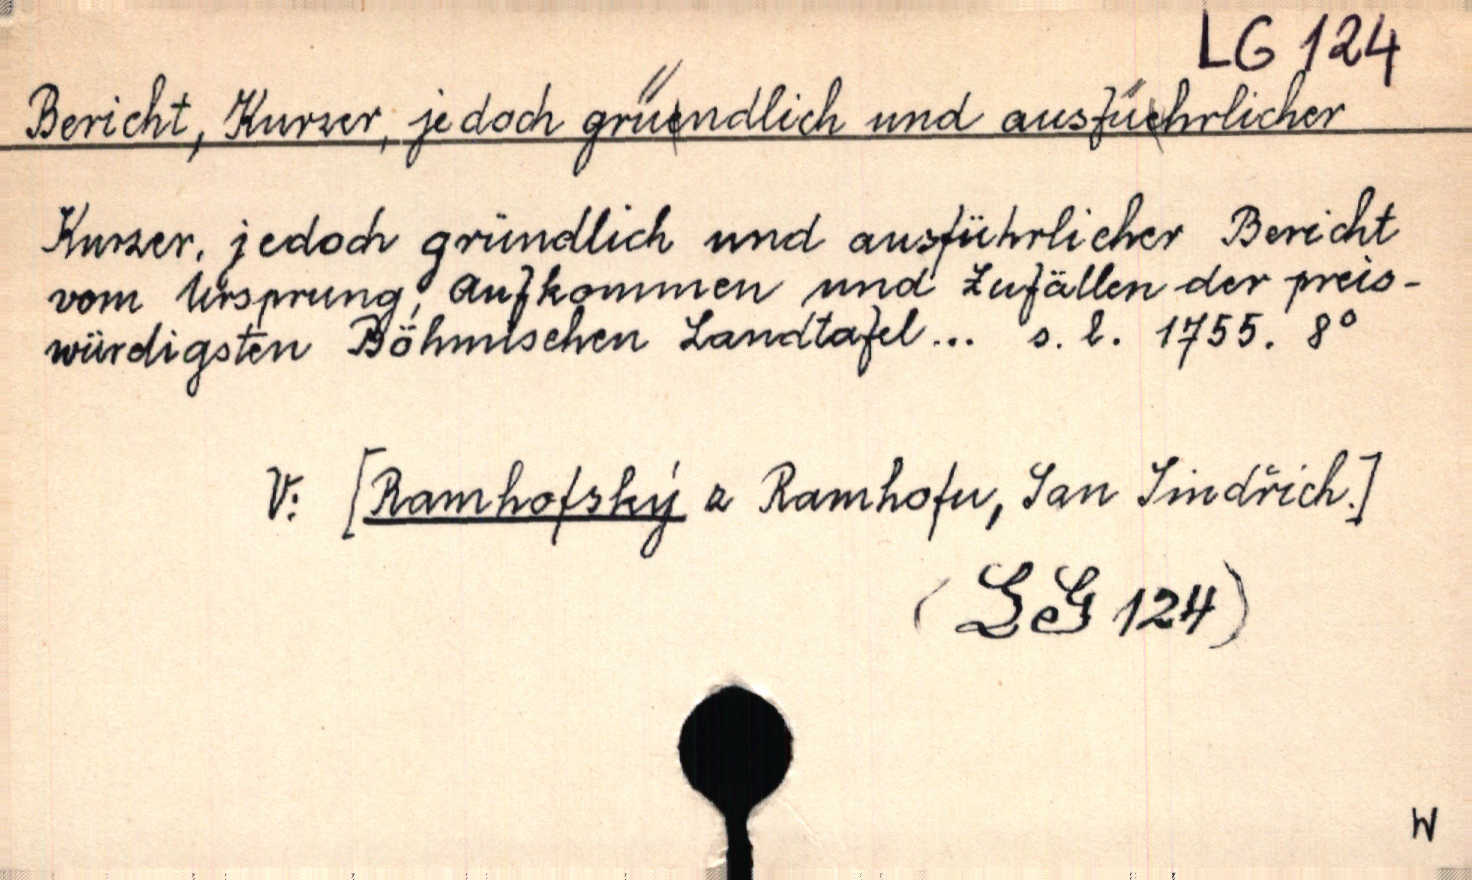 LG 124
Bericht, Kurzer, jedoch gründlich und ausführlicher
Kurzer, jedoch gründlich und ausführlicher Bericht
vom Ursprung, Aufkommen und Zufällen der preis-
würdigsten Böhmischen Landtafel... s. l. 1755. 8°
V: [Ramhofský z Ramhofu, Jan Jindřich.]
(LG 124)
W